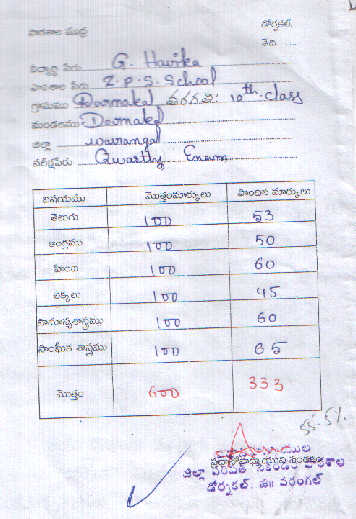 పాఠశాల ముద్ర
డోర్నకల్,
తేది.
విద్యార్థి పేరు G. Harika
పాఠశాల పేరు Z.P.S. School
గ్రామము Dornakal తరగతి: 10th class
మండలము Dornakal
జిల్లా warangal
Quartly Exam
విషయము మొత్తంమార్కులు పొందిన మార్కులు
తెలుగు 100 53
ఆంగ్లము 100 50
హింది 100 60
లెక్కలు 100 45
సామాన్యశాస్త్రము 100 60
సాంఘీక శాస్త్రము 100 65
మొత్తం 600 333
55.5%
జిల్లా పరిషత్ సెకండరీ పాఠశాల
డోర్నకల్, జిఃః వరంగల్